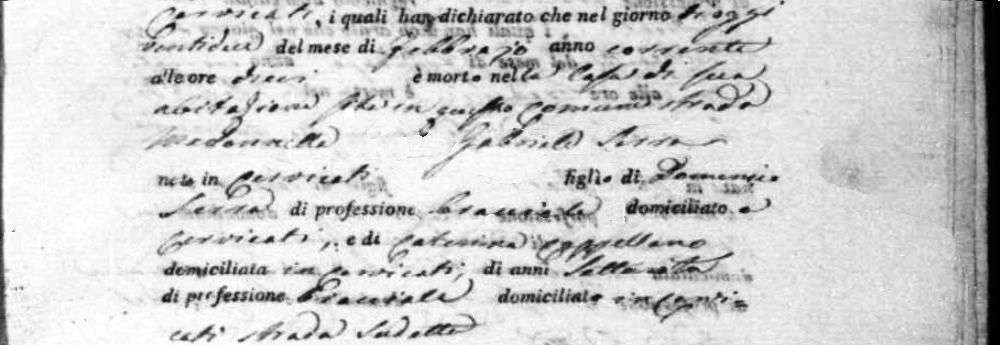 Cervicati, i quali han dichiarato che nel giorno di oggi
ventidue del mese di Febbrajo anno corrente
alle ore dieci è morto nella Casa di sua
abitazione sita in questo comune strada
Madonnella Gabriele Serra
nato in Cervicati figlio di Domenico
Serra di professione bracciale domiciliato a
Cervicati, e di Caterina Cappellano
domiciliata in Cervicati, di anni
di professione Bracciale domiciliato in Cervi=
cati strada sudetta